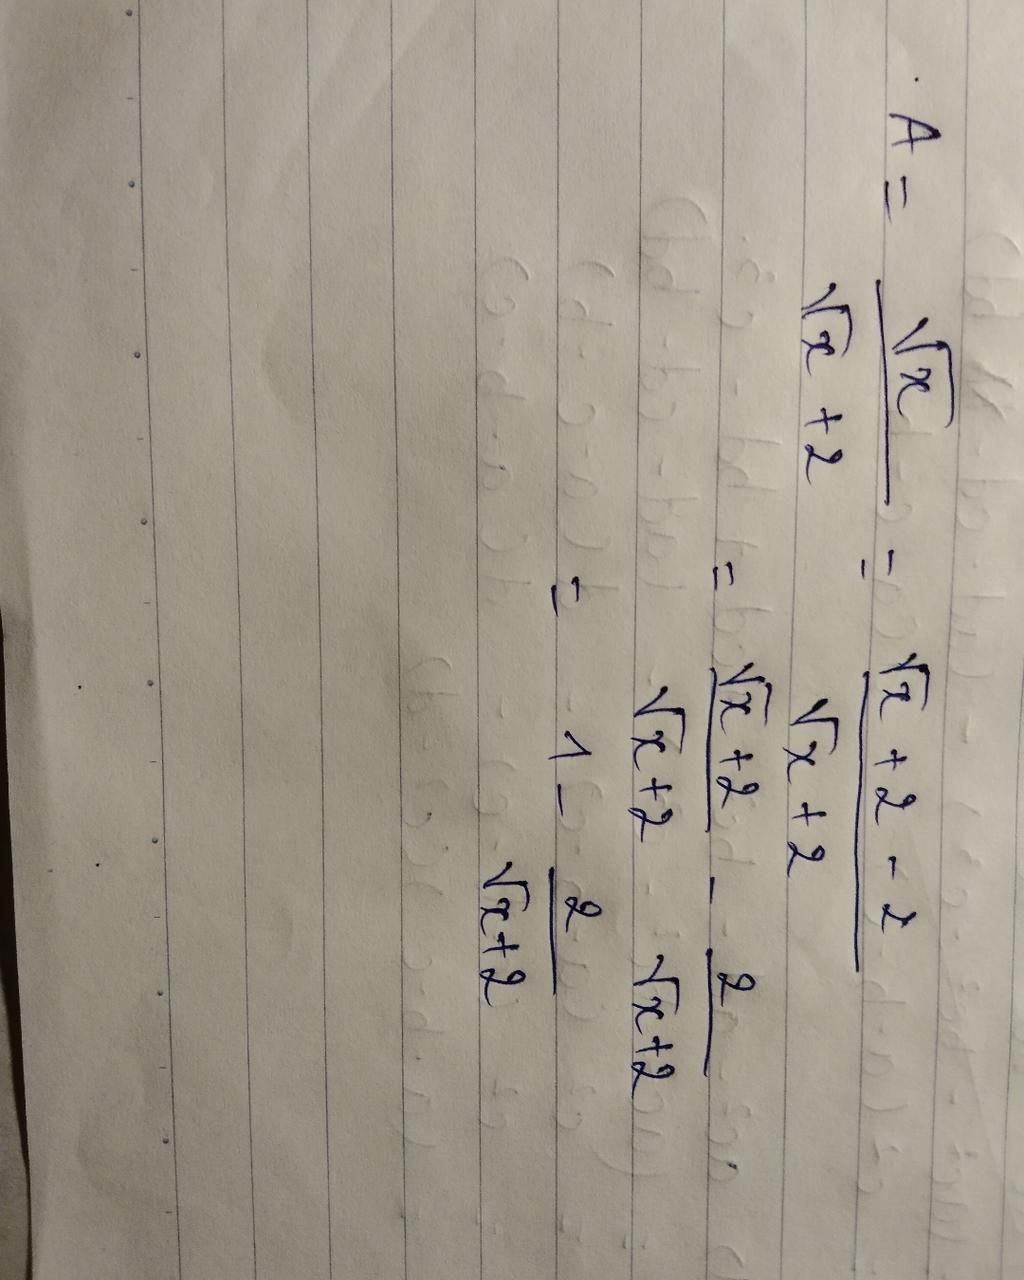 A = √x / (√x + 2) = (√x + 2 - 2) / (√x + 2)
= (√x + 2) / (√x + 2) - 2 / (√x + 2)
= 1 - 2 / (√x + 2)